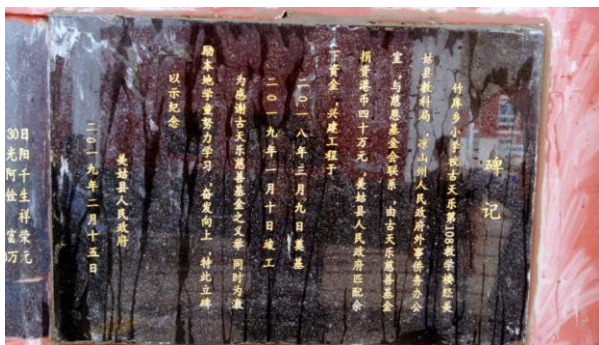 碑记
竹库乡小学校古天乐第108教学楼经美
姑县教科局、凉山州人民政府外事侨务办公
室,与慈恩基金会联系,由古天乐慈善基金
捐资港币四十万元,美姑县人民政府匹配余
下资金,兴建工程于
二〇一八年三月九日奠基
二〇一九年一月十日竣工
为感谢古天乐慈善基金之义举,同时为激
励本地学童努力学习,奋发向上,特此立碑
以示纪念
美姑县人民政府
二〇一九年二月十五日
30日
光阳
阿千
生
祥
富荣
万元